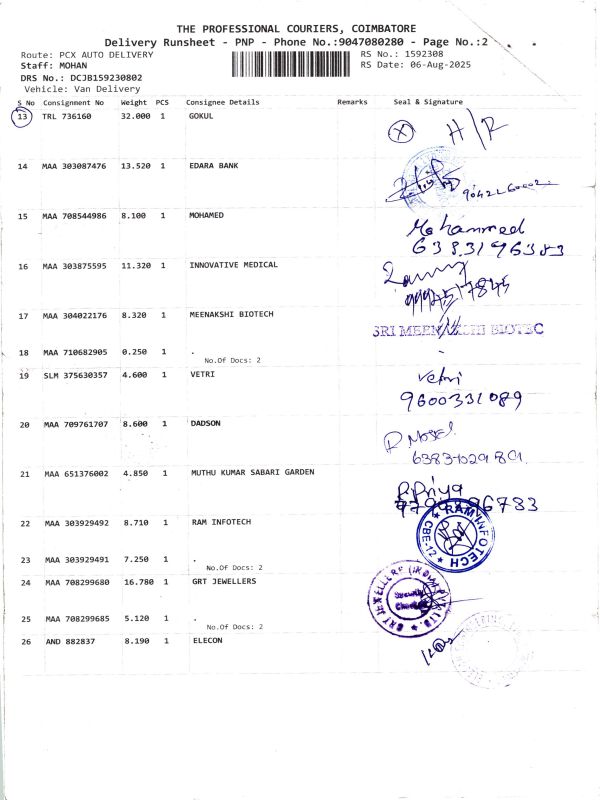 THE PROFESSIONAL COURIERS, COIMBATORE
Delivery Runsheet - PNP - Phone No.:9047080280 - Page No.:2
Route: PCX AUTO DELIVERY RS No.: 1592308
Staff: MOHAN RS Date: 06-Aug-2025
DRS No.: DCJB159230802
Vehicle: Van Delivery
S No Consignment No Weight PCS Consignee Details Remarks Seal & Signature
13 TRL 736160 32.000 1 GOKUL X H/R
14 MAA 303087476 13.520 1 EDARA BANK
15 MAA 708544986 8.100 1 MOHAMED Mohammed
6383196383
16 MAA 303875595 11.320 1 INNOVATIVE MEDICAL
17 MAA 304022176 8.320 1 MEENAKSHI BIOTECH SRI MEENAKSHI BIOTEC
18 MAA 710682905 0.250 1 .
No.Of Docs: 2
19 SLM 375630357 4.600 1 VETRI Vetri
9600331089
20 MAA 709761707 8.600 1 DADSON
21 MAA 651376002 4.850 1 MUTHU KUMAR SABARI GARDEN P.Priya
22 MAA 303929492 8.710 1 RAM INFOTECH RAM INFOTECH CBE-12
23 MAA 303929491 7.250 1 .
No.Of Docs: 2
24 MAA 708299680 16.780 1 GRT JEWELLERS GRT JEWELLERS (INDIA) PVT LTD.
Security
25 MAA 708299685 5.120 1 .
No.Of Docs: 2
26 AND 882837 8.190 1 ELECON